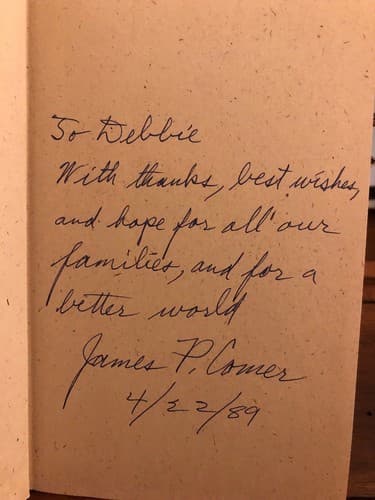 To Debbie
With thanks, best wishes,
and hope for all our
families, and for a
better world
James P. Comer
4/22/89